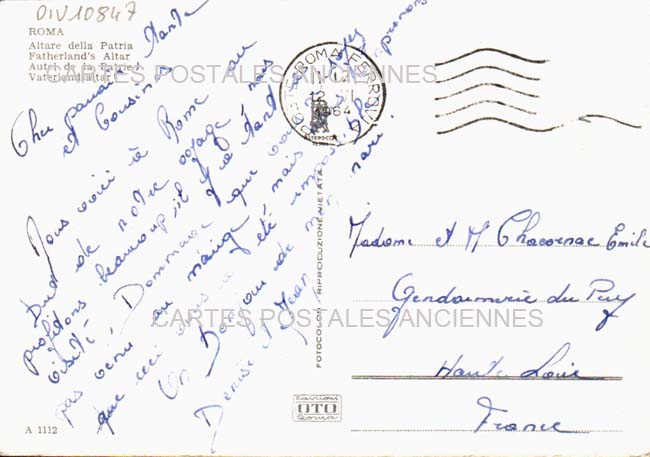 OIV10847
ROMA
Altare della Patria
Fatherland's Altar
Autel de la Patrie
Vaterlandsaltar
Tante
et Cousins
Nous voici à Rome au
but de notre voyage, nous
profitons beaucoup, il y a tant à
visité. Dommage que vous ne soyez
pas venu au mariage mais
que ceci vous a été impossible
Un bonjour de mon mari.
Denise et Jean
ROMA FERROVIA
1964
FOTOCOLOR RIPRODUZIONE VIETATA
Madame et M Chacornac Emile
Gendarmerie du Puy
Haute Loire
France
CARTES POSTALES ANCIENNES
CARTES POSTALES ANCIENNES
Edizioni
OTO
Roma
A 1112